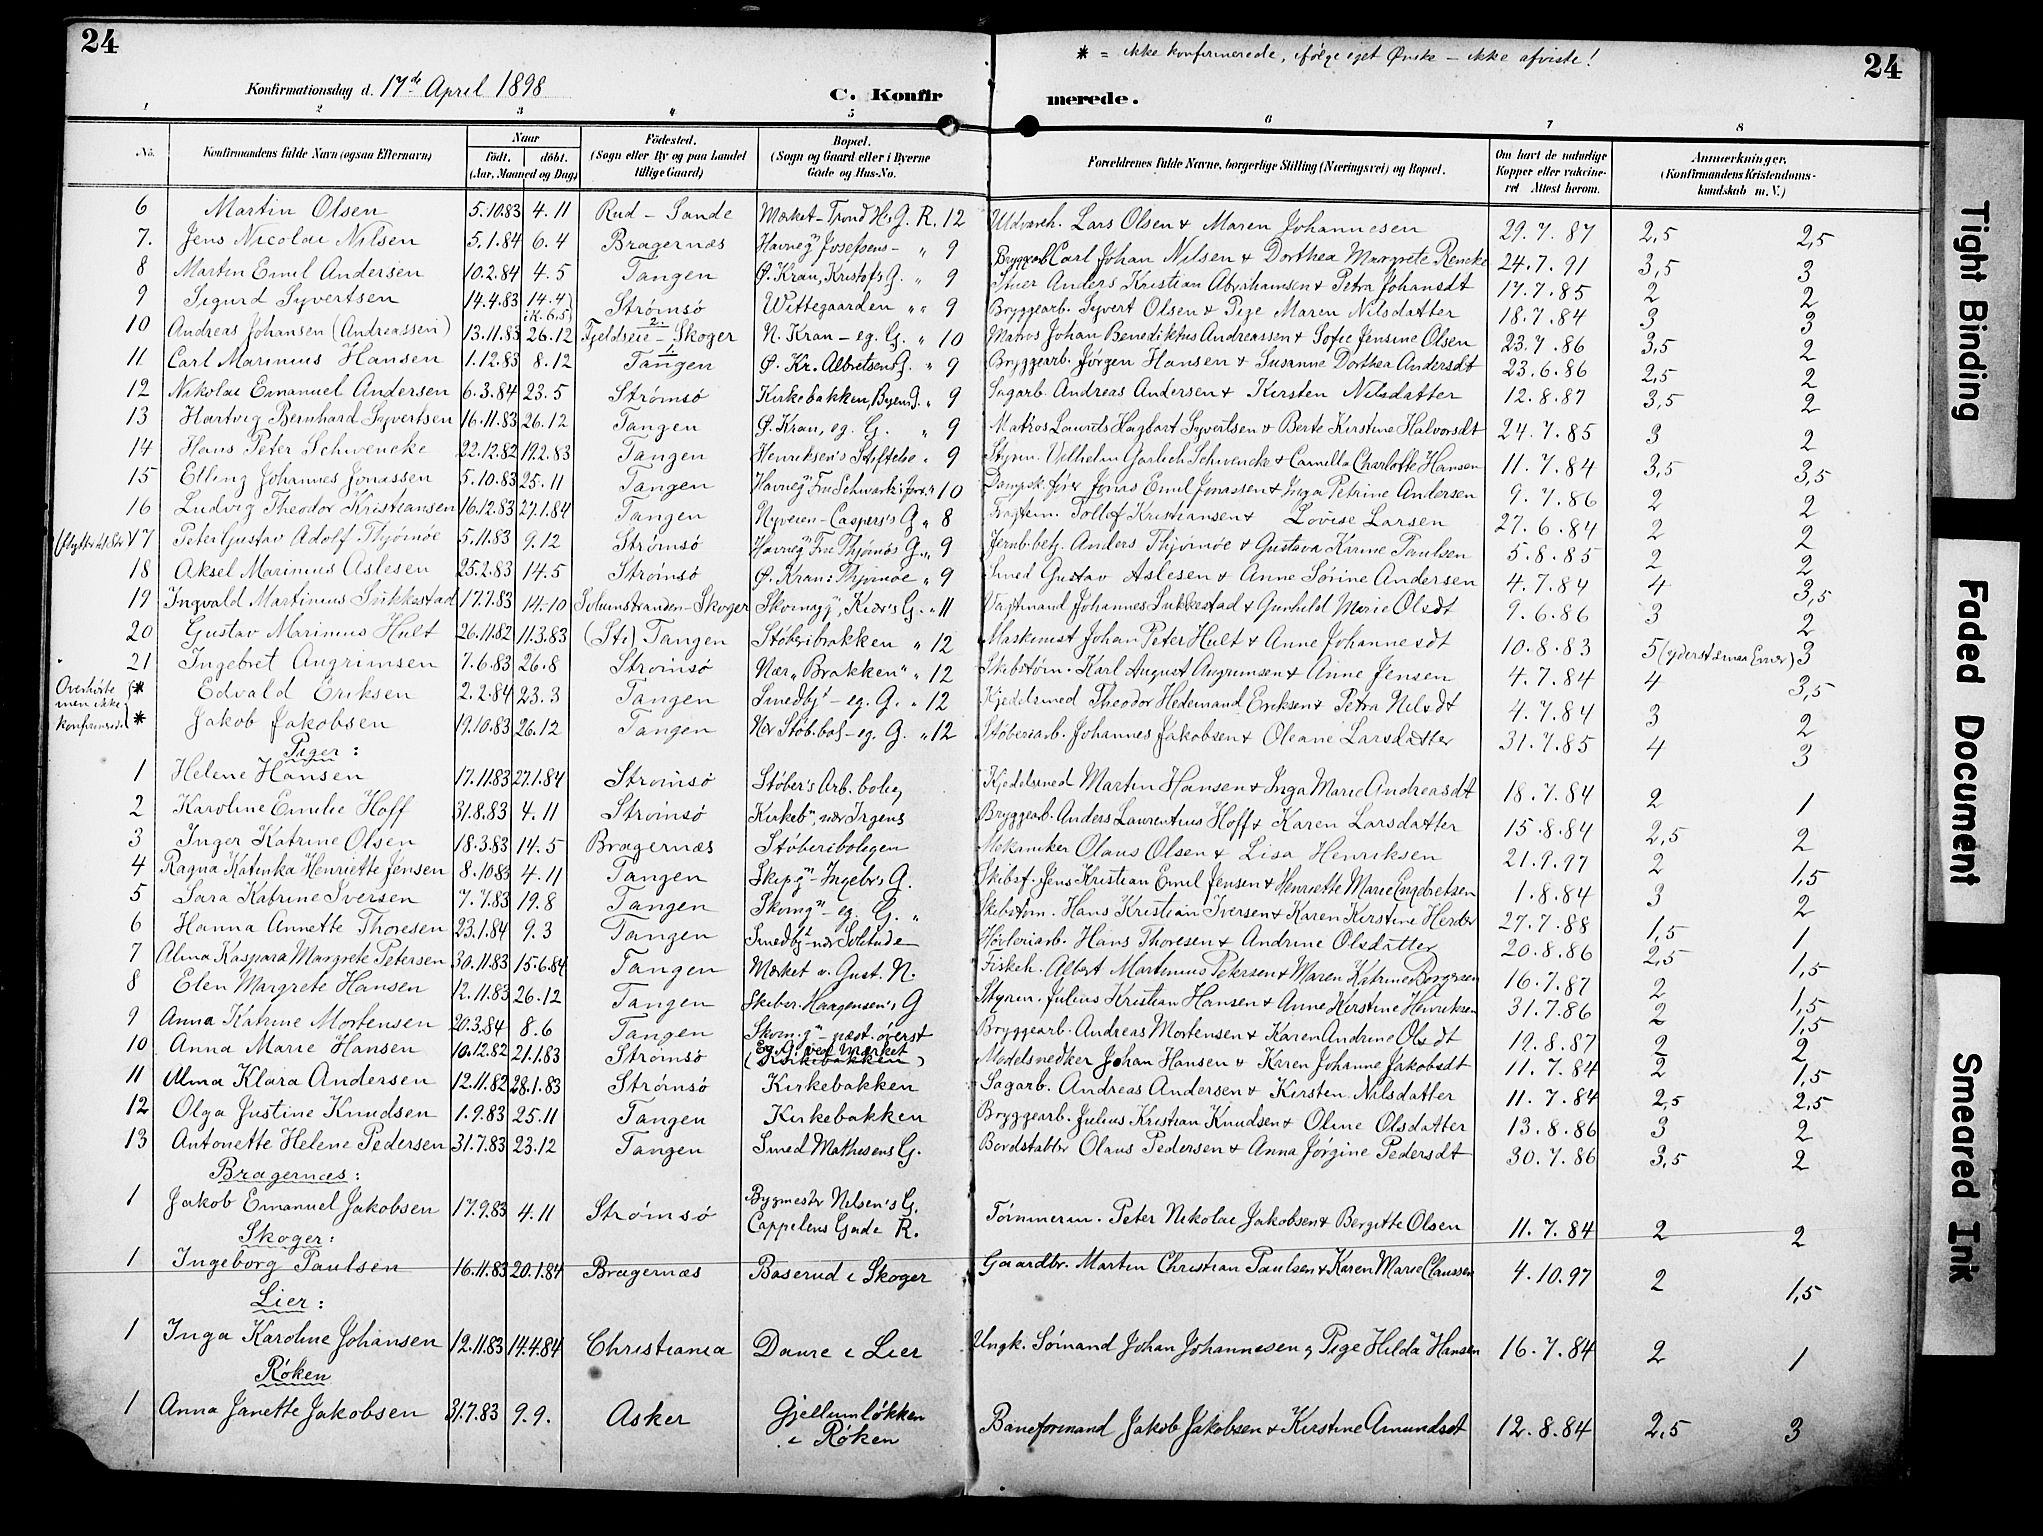 24
24
* = ikke konfirmerede, ifølge eget Ønske – ikke afviste!
Konfirmationsdag d. 17de April 1898
C. Konfirmerede.
1 2 3 4 5 6 7 8
No. Konfirmandens fulde Navn (ogsaa Efternavn) Naar født. døbt. (Aar, Maaned og Dag) Fødested. (Sogn eller By og paa Landet tillige Gaard) Bopæl. (Sogn og Gaard eller i Byerne Gade og Hus-No. Forældrenes fulde Navne, borgerlige Stilling (Næringsvei) og Bopæl. Om havt de naturlige Kopper eller vaccineret Attest herom. Anmærkninger. (Konfirmandens Kristendomskundskab m. V.)
6 Martin Olsen 5.10.83 4.11 Rud – Sande Mærket – Trond H's G. R. 12 Lars Olsen & Maren Johannesen 29.7.87 2,5 2,5
7. Jens Nicolai Nilsen 5.1.84 6.4 Bragernæs Havneg" Josefsens – " 9 Bryggearb. Carl Johan Nilsen & Dorthea Margrete Rencke 24.7.91 3,5 3
8 Martin Emil Andersen 10.2.84 4.5 Tangen Ø. Kran, Kristofs G. " 9 Anders Kristian Abrahamsen & Petra Johansdt 17.7.85 2 2
9 Sigurd Syvertsen 14.4.83 14.4 (i K. 6.5) Strømsø Wittegaarden " " 9 Bryggearb. Syvert Olsen & Pige Maren Nilsdatter 18.7.84 3 3
10 Andreas Johansen (Andreassen) 13.11.83 26.12 Fjeldseie – Skoger N. Kran – eg. G. " 10 Matros Johan Benediktus Andreassen & Sofie Jensine Olsen 23.7.86 3,5 2
11 Carl Marinius Hansen 1.12.83 8.12 Tangen Ø. Kr. Albretsens G. " 9 Bryggearb. Jørgen Hansen & Susanne Dorthea Andersdt 23.6.86 2,5 2
12 Nikolai Emanuel Andersen 6.3.84 23.5 Strømsø Kirkebakken, G. " 9 Sagarb. Andreas Andersen & Kirsten Nilsdatter 12.8.87 3,5 2
13 Hartvig Bernhard Syvertsen 16.11.83 26.12 Tangen Ø. Kran, eg. G. " 9 Matros Laurits Hagbart Syvertsen & Berte Kirstine Halvorsdt 24.7.85 3 2
14 Hans Peter Schwencke 22.12.82 19.2.83 Tangen Henriksen's Stiftelse " 9 Styrm. Vilhelm Garlich Schwencke & Camilla Charlotte Hansen 11.7.84 3,5 3,5
15 Elling Johannes Jonassen 5.10.83 25.11 Tangen Havneg" Fru Schwartz: " 10 Dampsk.fører Jonas Emil Jonassen & Inga Petrine Andersen 9.7.86 2 2
16 Ludvig Theodor Kristiansen 16.12.83 27.1.84 Tangen Nyveien – Caspers's G " 8 Fragtem. Tollef Kristiansen & Lovise Larsen 27.6.84 2 2
17 Peter Gustav Adolf Thjømøe 5.11.83 9.12 Strømsø Havneg" Fru Thjømøs G. " 9 Jernb.betj. Anders Thjømøe & Gustava Karine Paulsen 5.8.85 2 2
18 Aksel Marinius Aslesen 25.2.83 14.5 Strømsø Ø. Kran: Thjømøe " 9 Smed Gustav Aslesen & Anne Sørine Andersen 4.7.84 4 3,5
19 Ingvald Martinius Sukkestad 17.7.83 14.10 Solumstranden – Skoger Skomagg", Kiær's G. " 11 Vagtmand Johannes Sukkestad & Gunhild Marie Olsdt 9.6.86 3 2
20 Gustav Marinius Hult 26.11.82 11.3.83 (St) Tangen Støberibrakken " 12 Maskinist Johan Peter Hult & Anne Johannesdt 10.8.83 5 3
21 Ingebret Angrimsen 7.6.83 26.8 Strømsø Nær "Brakken" " 12 Skibstøm. Karl August Angrimsen & Anne Jensen 4.7.84 4 3,5
Overhørte men ikke konfirmerede
* Edvald Eriksen 2.2.84 23.3 Tangen Smedbj" – eg. G. " 12 Kjedelsmed Theodor Hedemand Eriksen & Petra Nilsdt 4.7.84 3 2
* Jakob Jakobsen 19.10.83 26.12 Tangen Nær Støb.bol – eg. G. " 12 Støberiarb. Johannes Jakobsen & Oleane Larsdatter 31.7.85 4 3
Piger:
1 Helene Hansen 17.11.83 27.1.84 Strømsø Støber's Arb. bolig Kjedelsmed Martin Hansen & Inga Marie Andreasdt 18.7.84 2 1
2 Karoline Emilie Hoff 31.8.83 4.11 Strømsø Kirkeb", nær Irgens Bryggearb. Anders Laurentius Hoff & Karen Larsdatter 15.8.84 2,5 2
3 Inger Katrine Olsen 18.3.83 14.5 Bragernæs Støberiboligen Mekaniker Olaus Olsen & Lisa Henriksen 21.9.97 2 1,5
4 Ragna Katinka Henriette Jensen 8.10.83 4.11 Tangen Skipg" – Ingebr's G. Skibsf. Jens Kristian Emil Jensen & Henriette Marie Engbretsen 1.8.84 3 2
5 Sara Katrine Iversen 7.7.83 19.8 Tangen Skomg" – eg. G. " Skibstøm. Hans Kristian Iversen & Karen Kirstine Herder 27.7.88 1,5 1
6 Hanna Annette Thoresen 23.1.84 9.3 Tangen Smedbj – nær Solitude Høvleriarb. Hans Thoresen & Andrine Olsdatter 20.8.86 2,5 1,5
7 Alma Kaspara Margrete Petersen 30.11.83 15.6.84 Tangen Mærket v. Gust. N. Fiskeh. Albert Martinius Petersen & Maren Katrine Borgersen 16.7.87 2 1,5
8 Elen Margrete Hansen 12.11.83 26.12 Tangen Skiber. Haagensen's G Styrm. Julius Kristian Hansen & Anne Kirstine Henriksen 31.7.86 2 1,5
9 Anna Katrine Mortensen 20.3.84 8.6 Tangen Skom.g" – næst. øverst Bryggearb. Andreas Mortensen & Karen Andrine Olsdt 19.8.87 2 2
10 Anna Marie Hansen 10.12.82 21.1.83 Strømsø Eg. G. ved Mærket (Kirkebakken) Modelsnedker Johan Hansen & Karen Johanne Jakobsdt 11.7.84 2 1,5
11 Alma Klara Andersen 12.11.82 28.1.83 Strømsø Kirkebakken Sagarb. Andreas Andersen & Kirsten Nilsdatter 11.7.84 2,5 2,5
12 Olga Justine Knudsen 1.9.83 25.11 Tangen Kirkebakken Bryggearb. Julius Kristian Knudsen & Oline Olsdatter 13.8.86 3 2
13 Antonette Helene Pedersen 31.7.83 23.12 Tangen Smed Mathesens G. Bordstabler Olaus Pedersen & Anna Jørgine Pedersdt 30.7.86 3,5 2
Bragernæs:
1 Jakob Emanuel Jakobsen 17.9.83 4.11 Strømsø Bygmester Nilsen's G. Cappelens Gade R. Tømmerm. Peter Nikolai Jakobsen & Bergitte Olsen 11.7.84 2 2
Skoger:
1 Ingeborg Paulsen 16.11.83 20.1.84 Bragernæs Baserud i Skoger Gaardbr. Martin Christian Paulsen & Karen Marie Claussen 4.10.97 2 1,5
Lier:
1 Inga Karoline Johansen 12.11.83 14.4.84 Christiania Daure i Lier Ungk. Sømand Johan Johannesen & Pige Hilda Hansen 16.7.84 2 1
Røken
1 Anna Janette Jakobsen 31.7.83 9.9. Asker Gjellumløkken i Røken Baneformand Jakob Jakobsen & Kirstine Amundsdt 12.8.84 2,5 3
Tight Binding
Faded Document
Smeared Ink